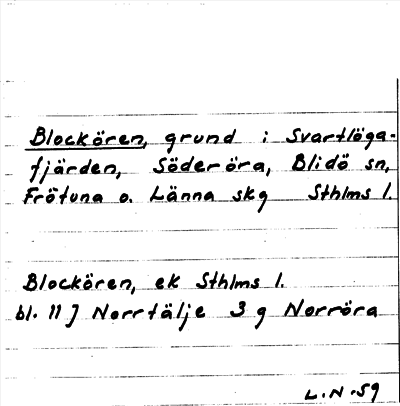 Blockören, grund i Svartlöga-
fjärden, Söderöra, Blidö sn,
Frötuna o. Länna skg Sthlms l.
Blockören, ek Sthlms l.
bl. 11 J Norrtälje 3 g Norröra
L.N.59